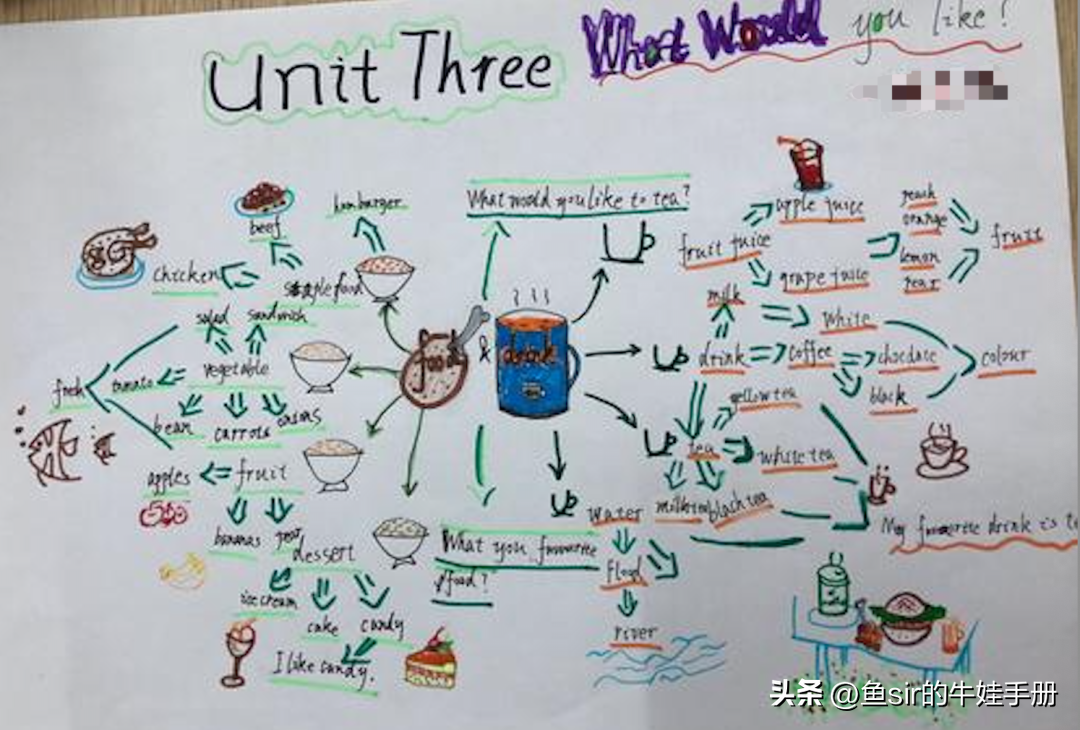 Unit Three
What Would you like?
What would you like to tea?
hamburger
beef
chicken
staple food
salad
sandwich
vegetable
fresh
tomato
bean
carrots
onions
apples
fruit
bananas
pear
dessert
ice cream
cake
candy
I like candy.
food
&
drink
What you favourite
food?
fruit juice
apple juice
grape juice
peach
orange
lemon
pear
fruit
milk
White
drink
coffee
chocdate
colour
black
yellow tea
tea
white tea
milktea
black tea
My favourite drink is te
water
flood
river
头条 @鱼sir的牛娃手册